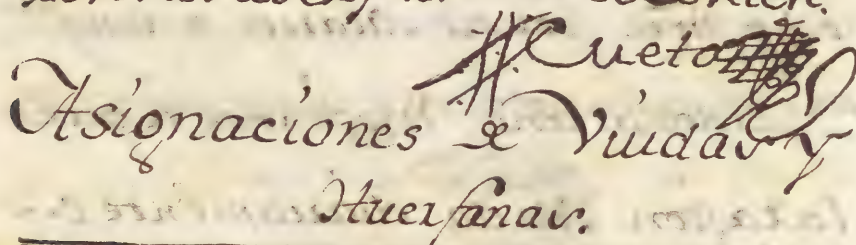 Cueto
Asignaciones de Viudas y
Huerfanas.